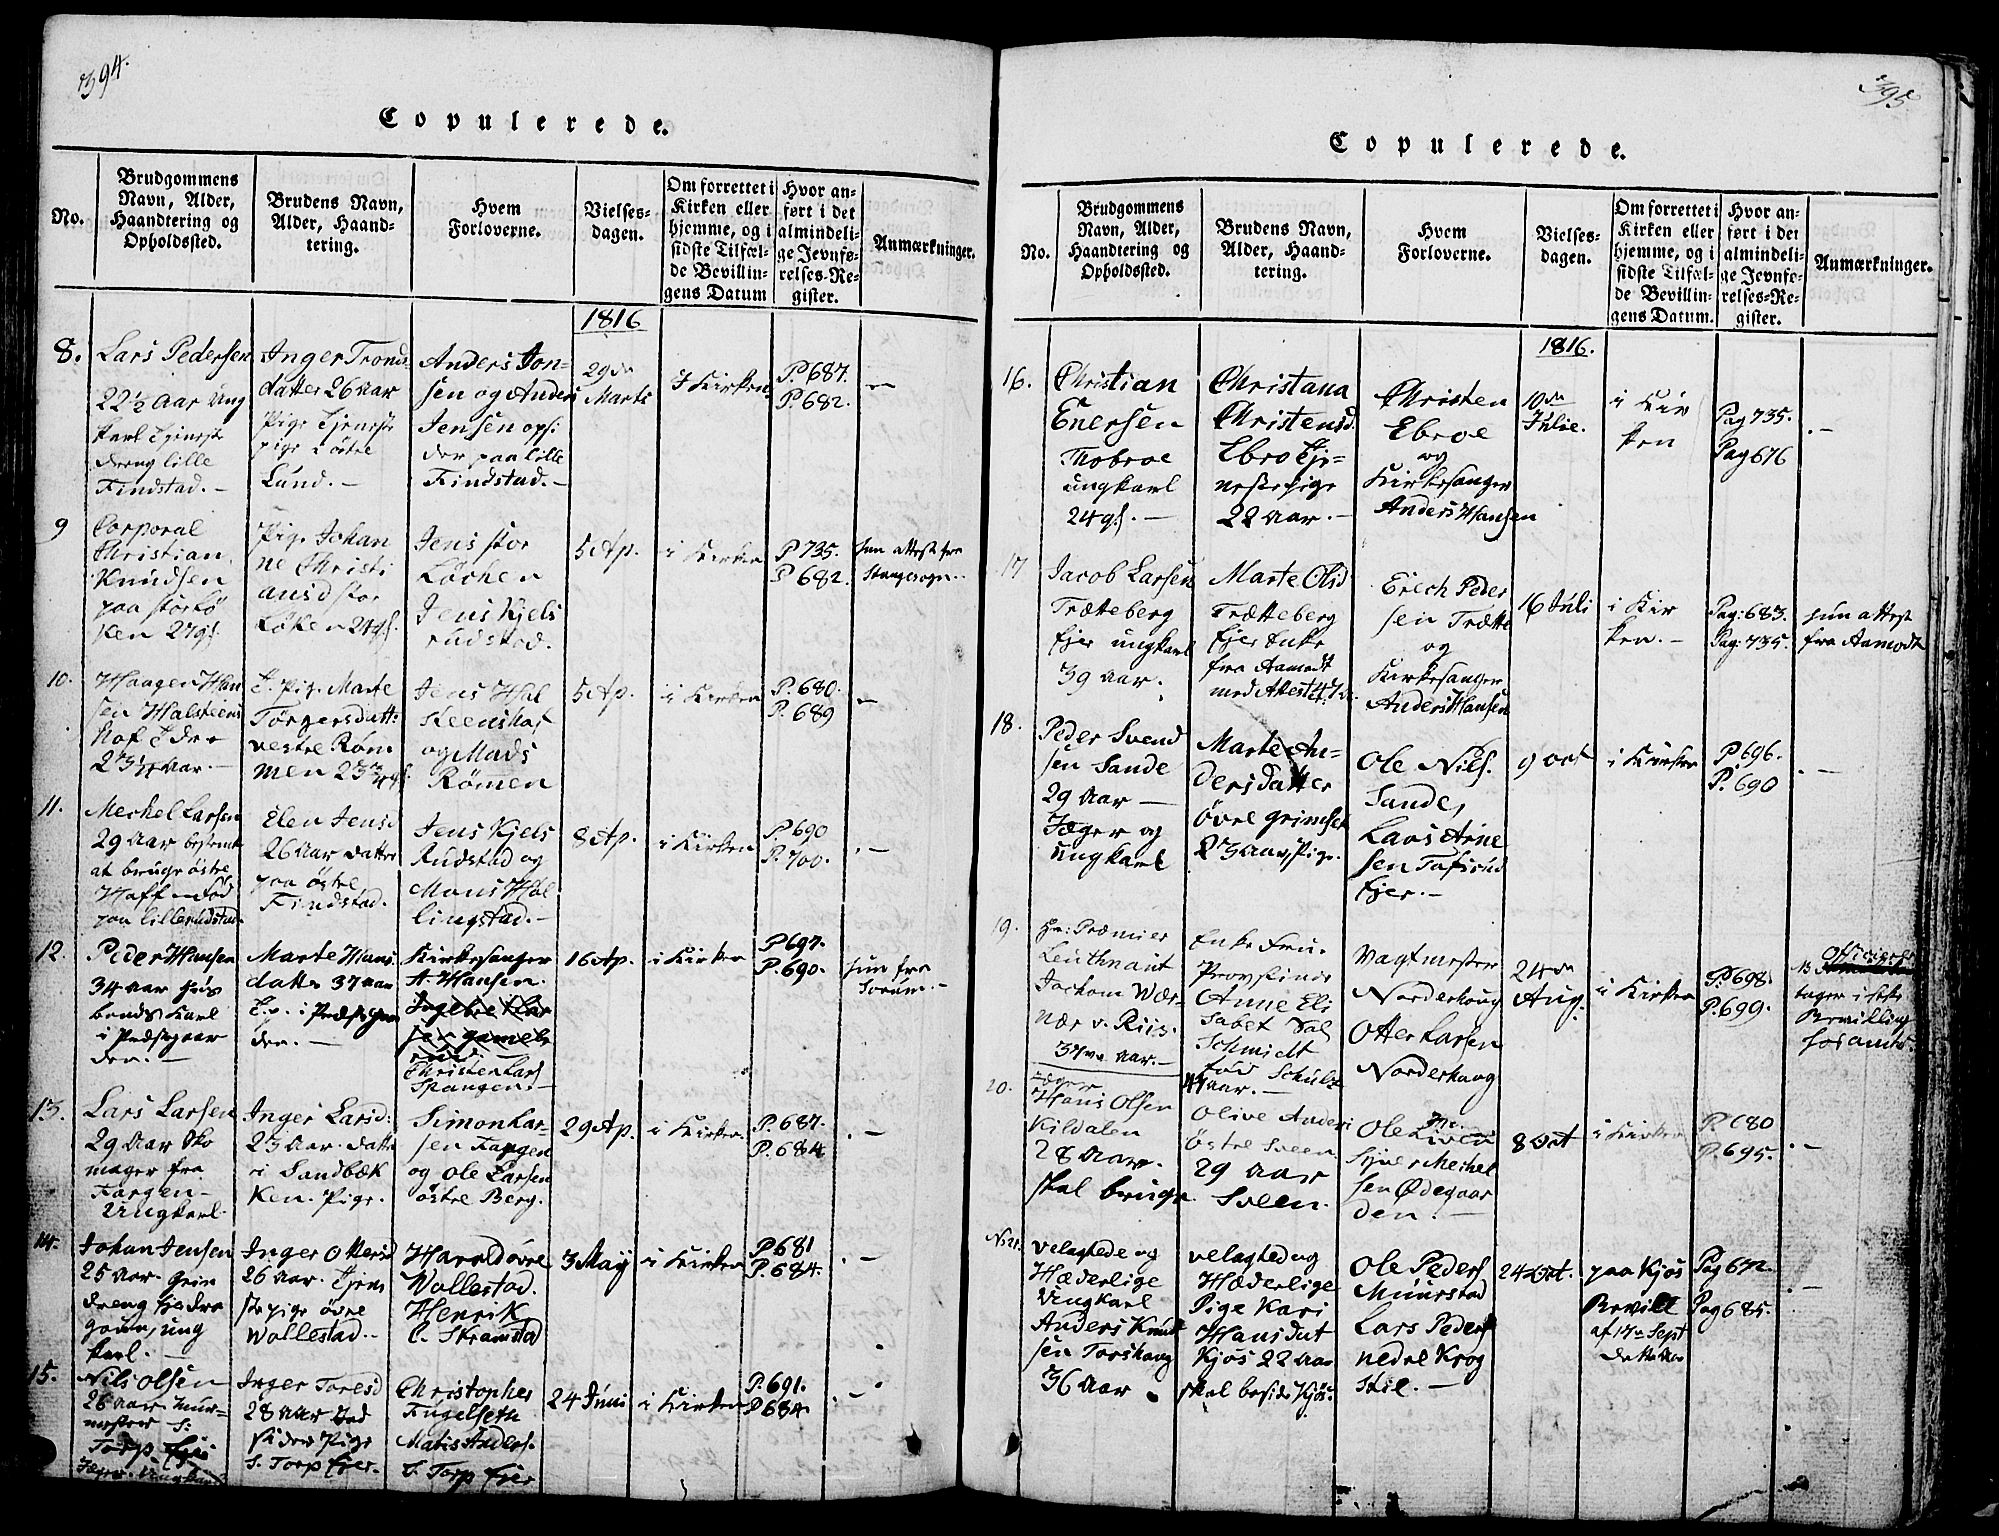 394.
Copulerede.
No.
Brudgommens
Navn, Alder,
Haandtering og
Opholdssted.
Brudens Navn,
Alder, Haand-
tering.
Hvem
Forloverne.
Vielses-
dagen.
Om forrettet i
Kirken eller
hjemme, og i
sidste Tilfæl-
de Bevillin-
gens Datum
Hvor an-
ført i det
almindeli-
ge Jevnfø-
relses-Re-
gister.
Anmærkninger.
1816
8.
Lars Pedersen
22½ Aar Ung
Karl Tjeneste
dreng lille
Findstad.-
Inger Tronds
datter 26 Aar
Pige Tjeneste
pige Østre
Lund.-
Anders Jon-
sen og Anders
Jensen opsi
der paa lille
Findstad.-
29de
Marts
I Kirken
P. 687.
P. 682.
9
Corporal
Christian
Knudsen
paa storLø
ken 27 gl.
Pige Johan
ne Christi
ansd stor
Løken 24 gl.
Jens stor
Løchen
Jens Kjels
rudstad.
5 Ap.
i Kirken
P 735.
P 682.
hun attest fra
Stangesogn.-
10.
Haagen Han
sen Halsteens
hof
23¼ Aar.-
T. Pige Marte
Torgersdatt:
vestre Røm
men 23¾ gl.
Jens Hal
steenshof
og Mads
Rømen
5 Ap.
i Kirken
P. 680.
P. 689
11.
Mechel Larsen
29 Aar bestemt
at bruge østre
Hoff - Fød
paa lillerudstad.
Elen Jensd
26 Aar datter
paa østre
Findstad.
Jens Kjels
Rudstad og
Mons Hol
lingstad.-
8 Ap.
i Kirken
P. 690
P. 700.
12.
Peder Hansen
34 Aar huus
bonds Karl
i Præstegaar
den.-
Marte Hans
datter 37 Aar
T.p. i Præstegaar
den.-
Kirkesanger
A. Hansen.
Christen Lars
Spangen.-
16 Ap.
i Kirken
P 697.
P. 690.
hun fra
13.
Lars Larsen
29 Aar Sko
mager fra
Fargen-
Ungkarl.
Inger Larsd:
23 Aar. datter
i Sandbæk
ken. Pige.
Simon Lar-
sen Fargen
og Ole Larsen
østre Berg.
29 Ap.
i Kirken
P. 687.
P. 684.
14.
Johan Jensen
25 Aar.
dreng
ung
karl.-
Inger Ottersd
26 Aar. Tjene
ste pige øvre
Wollestad.
Harald øvre
Wollestad.
Henrik
3 Maij
i Kirken
P. 681
P. 684.
15.
Nils Olsen
26 Aar mur-
mester S:
Torp
Ungkarl
Inger Toresd
28 Aar
Pige
S. Torp Ejer.
Christopher
Fugelseth
Matis Anders.
S. Torp Ejer
24 Juni
i Kirken
P. 691.
P 684.
395
Copulerede.
No.
Brudgommens
Navn, Alder,
Haandtering og
Opholdssted.
Brudens Navn,
Alder, Haand-
tering.
Hvem
Forloverne.
Vielses-
dagen.
Om forrettet i
Kirken eller
hjemme, og i
sidste Tilfæl-
de Bevillin-
gens Datum.
Hvor an-
ført i det
almindeli-
ge Jevnfø-
relses-Re-
gister.
Anmærkninger.
1816.
16.
Christian
Enersen
Mobroe
ungkarl
24 gl.-
Christana
Christensd.
Ebro Tje-
neste pige
22 Aar.-
Christen
Ebroe
og
Kirkesanger
Anders Hansen
10de
Julie.
i Kir
ken
Pag 735.
Pag 676
17
Jacob Larsen
Trætteberg
Ejer ungkarl
39 Aar.
Marte Olsd
Trætteberg
Ejer Enke
fra Aamodt
med Attest 47
Erich Peder
sen Trætte
og
Kirkesanger
Anders Hansen
16 Juli
i Kir
ken.-
Pag: 683.
Pag: 735.
hun attest
fra Aamodt
18.
Peder Svend
sen Sande
29 Aar-
Jæger og
ungkarl
Marte An-
dersdatter
øvre grimset
23 Aar, Pige.
Ole Nils.
Sande,
Lars Arne
sen Tofsrud
Ejer.-
9 Oct
i Kirken
P. 696.
P. 690
19.
Hr: Præmier
Leuthnant
Jochom Wær-
nær v. Riis.
37 Aar.-
Enke Frue
Provstinde
Anne Eli
sabet Sal
Schmidt
fød Schultz
47 Aar.-
Vagtmester
Norderhoug
Otter Larsen
Norderhoug
24de
Aug:
i Kirken
P. 698.
P. 699.
Officieren
Bevilling
20.
Jæger
Hans Olsen
Kildalen
28 Aar.
skal bruge
Olive Anders
Østre Sveen
29 Aar
Sveen.
Ole
Mechel
sen Ødegaar
den.-
8 Oct
i Kirken
P. 680
P. 695.
No 21.
velagtede og
Hæderlige
Ungkarl
Anders Knud
sen Torshaug
36 Aar
velagted og
Hæderlige
Pige Kari
Hansdat
Kjøs 22 Aar
skal beside Kjøs.
Ole Peders
Muurstad
Lars Peders
nedre Krog
stil.-
24 Oct.
paa Kjøs
Bevill
af 17de Sept
dette Aar
Pag 672.
Pag 685.